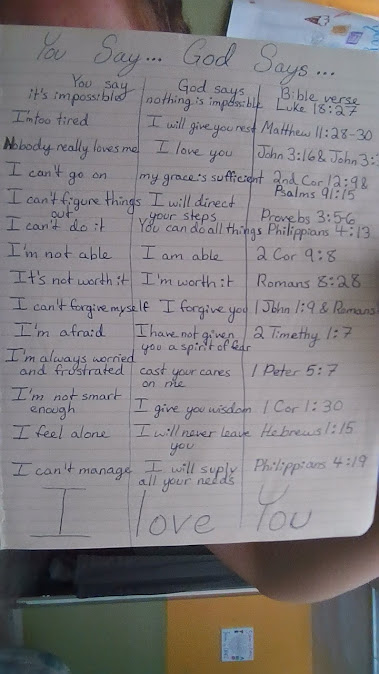 You Say... God Says...
You say it's impossible God says nothing is impossible Bible verse Luke 18:27
I'm too tired I will give you rest Matthew 11:28-30
Nobody really loves me I love you John 3:16 & John 3:
I can't go on my grace is sufficient 2nd Cor 12:9 & Psalms 91:15
I can't figure things out I will direct your steps Provebs 3:5-6
I can't do it You can do all things Philippians 4:13
I'm not able I am able 2 Cor 9:8
It's not worth it I'm worth it Romans 8:28
I can't forgive myself I forgive you 1 John 1:9 & Romans
I'm afraid I have not given you a spirit of fear 2 Timethy 1:7
I'm always worried and frustrated cast your cares on me 1 Peter 5:7
I'm not smart enough I give you wisdom 1 Cor 1:30
I feel alone I will never leave you Hebrews 1:15
I can't manage I will suply all your needs Philippians 4:19
I love You